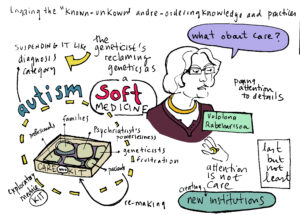 Logging the "known-unkown and re-ordering knowledge and practices
SUSPENDING IT LIKE
DIAGNOSIS
CATEGORY
autism
the
geneticist's
reclaiming
genetics as
a
SOFT
MEDICINE
what about care?
paying
attention
to details
Vololona
Rabeharisoa
professionals
families
Psychiatrist's
powerlessness
geneticists
frustration
CARE KIT
patients
exploratory
mobile
KIT
re-making
attention
is not
CARE
creating
new institutions
last
but not
least